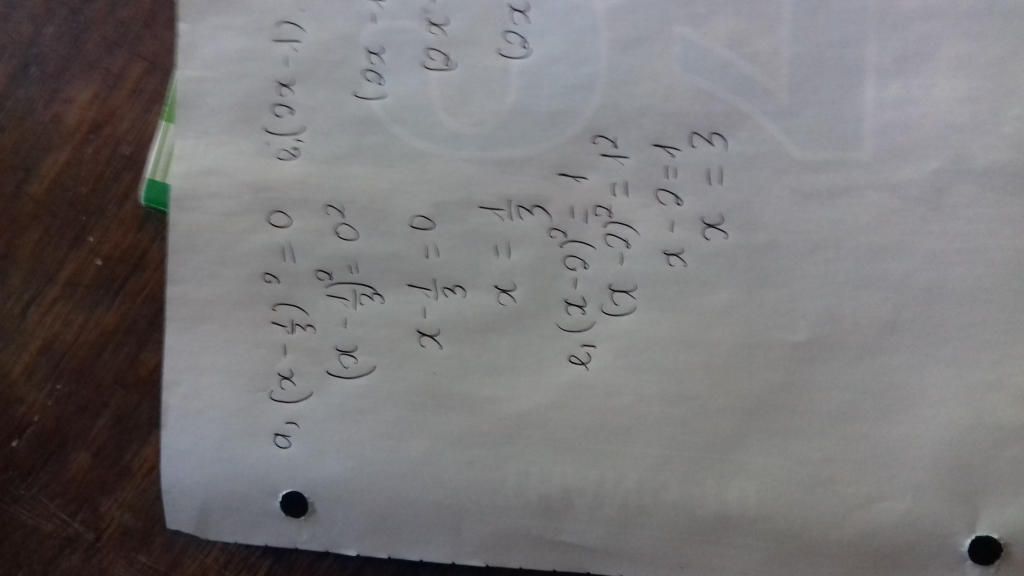 a, (x - 1/3)² = 0
(x - 1/3)² = 0²
x - 1/3 = 0
x = 1/3
(x - 2)² = 1
(x - 2)² = 1²
x - 2 = 1
x = 3
(2x - 1)
(2x -
(2x -
(2x